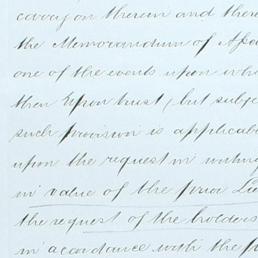 carry on therein and there
the Memorandum of Asso
one of the events upon whi
then Upon trust / but subje
such provision is applicab
upon the request in writing
in value of the Prior Lie
the request of the holders
in accordance with the p